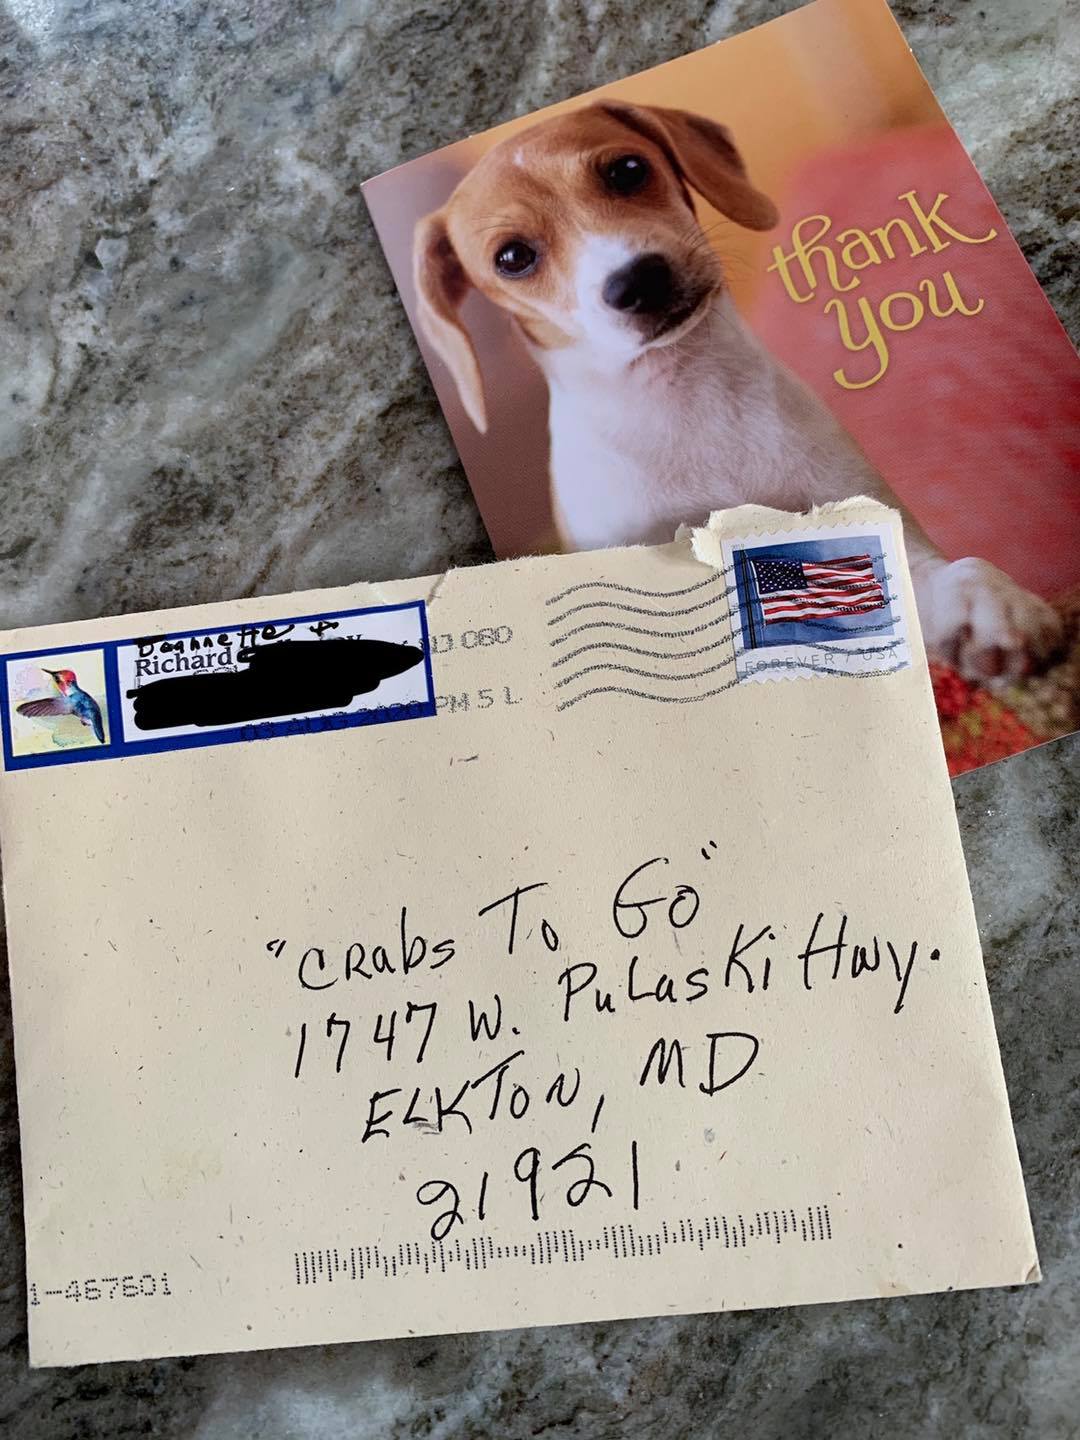 thank
you
Jeannette +
Richard
NJ 080
03 AUG 2020 PM 5 L
FOREVER / USA
"CRabs To Go"
1747 W. PuLasKi Hwy.
ELKToN, MD
21921
1-467601